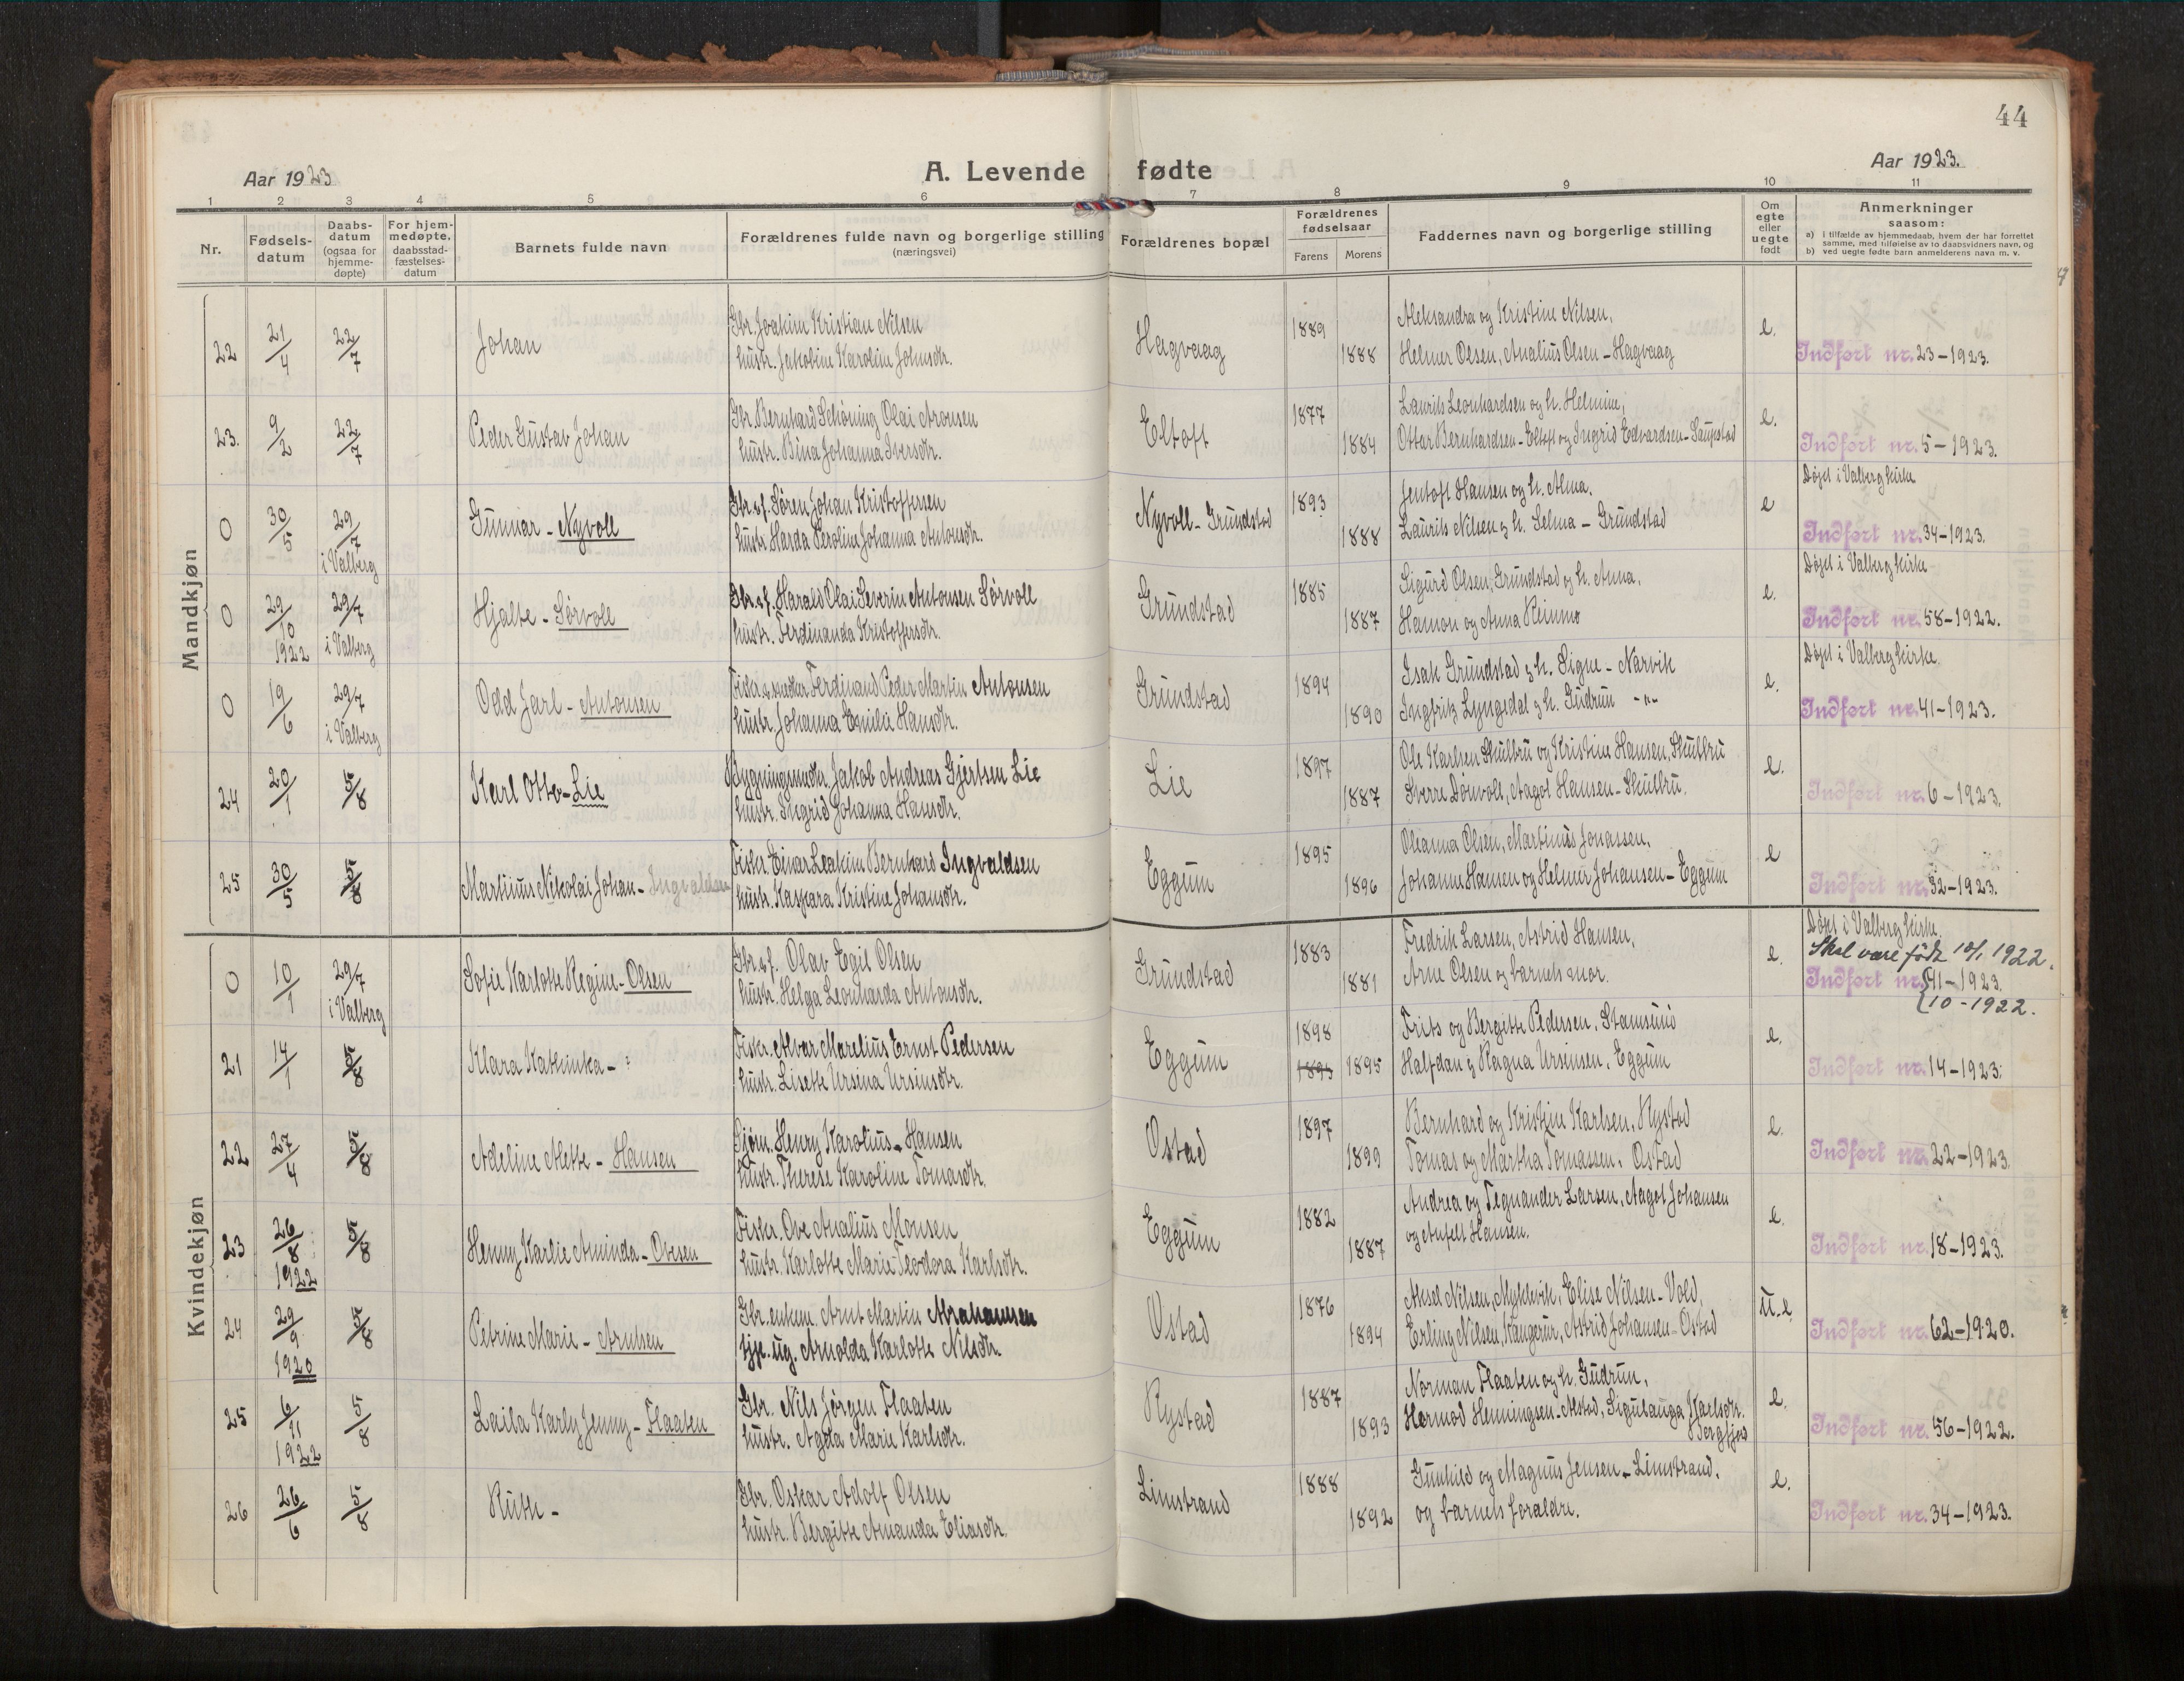 44
Aar 1923
A. Levende fødte
Aar 1923.
1 2 3 4 5 6 7 8 9 10 11
Nr.
Fødsels-
datum
Daabs-
datum
(ogsaa for
hjemme-
døpte)
For hjem-
medøpte,
daabsstad-
fæstelses-
datum
Barnets fulde navn
Forældrenes fulde navn og borgerlige stilling
(næringsvei)
Forældrenes bopæl
Forældrenes
fødselsaar
Farens
Morens
Faddernes navn og borgerlige stilling
Om
egte
eller
uegte
født
Anmerkninger
saasom:
a) i tilfælde av hjemmedaab, hvem der har forrettet
samme, med tilføielse av to daabsvidners navn, og
b) ved uegte fødte barn anmelderens navn m. v.
Mandkjøn
22 21/4 22/7 Johan
Gbr. Joakim Kristian Nilsen
hustr. Jakobine Karoline Johnsdtr.
Hagvaag 1889 1888
Aleksandra og Kristine Nilsen,
Helmer Olsen, Analius Olsen - Hagvaag
e.
Indført nr. 23-1923.
23. 9/2 22/7 Peder Gustav Johan
Gbr. Bernhard Schöning Olai Aronsen
hustr. Bina Johanna Iversdtr.
Eltoft 1877 1884
Laurits Leonhardsen og h. Helmine,
Ottar Bernhardsen - Eltoft og Ingrid Edvardsen - Saupstad
e.
Indført nr. 5-1923.
0 30/5 29/7 i Valberg Gunnar - Nyvoll
Gbr. s. f. Søren Johan Kristoffersen
hustr. Harda Peroline Johanna Antonsdtr.
Nyvoll - Grundstad 1893 1888
Jentoft Hansen og h. Alma,
Laurits Nilsen og h. Selma - Grundstad
e
Døpt i Valberg kirke
Indført nr. 34-1923.
0 29/10 1922 29/7 i Valberg Hjalte - Sørvoll
Gbr. s. f. Harald Olai Severin Antonsen Sørvoll
hustr. Ferdinanda Kristoffersdtr.
Grundstad 1885 1887
Sigurd Olsen, Grundstad og h. Anna,
Hamon og Anna Reinmo
e.
Døpt i Valberg kirke
Indført nr. 58-1922.
0 19/6 29/7 i Valberg Odd Jarl - Antonsen
Ferdinand Peder Martin Antonsen
hustr. Johanna Emilie Hansdtr.
Grundstad 1894 1890
Isak Grundstad og h. Signe - Narvik
Ingfrits Lyngedal og h. Gudrun -"-
e.
Døpt i Valberg kirke.
Indført nr. 41-1923.
24 20/1 5/8 Karl Otto - Lie
Bygningssnedkr. Jakob Andreas Gjertsen Lie
hustr. Ingrid Johanna Hansdtr.
Lie 1897 1887
Ole Karlsen Skulbru og Kristine Hansen, Skulbru
Sverre Dönvoll, Aagot Hansen - Skulbru.
e.
Indført nr. 6-1923.
25 30/5 5/8 Martinus Nikolai Johan - Ingvaldsen
Fiskr. Einar Leakim Bernhard Ingvaldsen
hustr. Kaspara Kristine Johansdtr.
Eggum 1895 1896
Oleanna Olsen, Martinus Jonassen,
Johanne Hansen og Helmer Johansen - Eggum
e
Indført nr. 32-1923.
Kvindekjøn
0 10/1 29/7 i Valberg Sofie Karlotte Regine - Olsen
Gbr. s. f. Olav Egil Olsen
hustr. Helga Leonharda Antonsdtr.
Grundstad 1883 1881
Fredrik Larsen, Astrid Hansen,
Arne Olsen og barnets mor.
e.
Døpt i Valberg kirke.
Skal være født 10/1 1922.
Indført nr. 91-1923.
10-1922.
21 14/1 5/8 Klara Kathinka -
Fiskr. Alvar Marelius Ernst Pedersen
hustr. Lisette Ursina Ursinsdtr.
Eggum 1898 1895 1895
Frits og Bergitte Pedersen, Stamsund
Halfdan og Ragna Ursinsen, Eggum
e.
Indført nr. 14-1923.
22 27/4 5/8 Adeline Mette - Hansen
Gjørm. Henry Karolius Hansen
hustr. Therese Karoline Tomasdtr.
Ostad 1897 1899
Bernhard og Kristine Karlsen, Rystad
Tomas og Martha Tomassen, Ostad
e.
Indført nr. 22-1923.
23 26/8 1922 5/8 Henny Karlie Aminda - Ovesen
Fiskr. Ove Analius Monsen
hustr. Karlotte Marie Teodora Karlsdtr.
Eggum 1882 1887
Andrea og Tegnander Larsen, Aagot Johansen
og Anfelt Hansen.
e.
Indført nr. 18-1923.
24 29/9 1920 5/8 Petrine Marie - Arntsen
Gbr. enkem. Arnt Martin Abrahamsen
tjp. ug. Arnolda Karlotte Nilsdtr.
Ostad 1876 1894
Aksel Nilsen, Myklevik, Elise Nilsen - Vold,
Erling Nilsen, Kangerur, Astrid Johansen - Ostad
u. e
Indført nr. 62-1920.
25 6/11 1922 5/8 Laila Karly Jenny - Flaaten
Gbr. Nils Jørgen Flaaten
hustr. Agda Marie Karlsdtr.
Rystad 1887 1893
Norman Flaaten og h. Gudrun,
Hermod Henningsen - Alstad, Sigulauga Karlsdtr.
Bergfjord
e.
Indført nr. 56-1922.
26 26/6 5/8 Ruth -
Gbr. Oskar Adolf Olsen
hustr. Bergitte Amanda Eliasdtr.
Limstrand 1888 1892
Gunhild og Magnus Jensen - Limstrand,
og barnets foraldre.
e.
Indført nr. 34-1923.